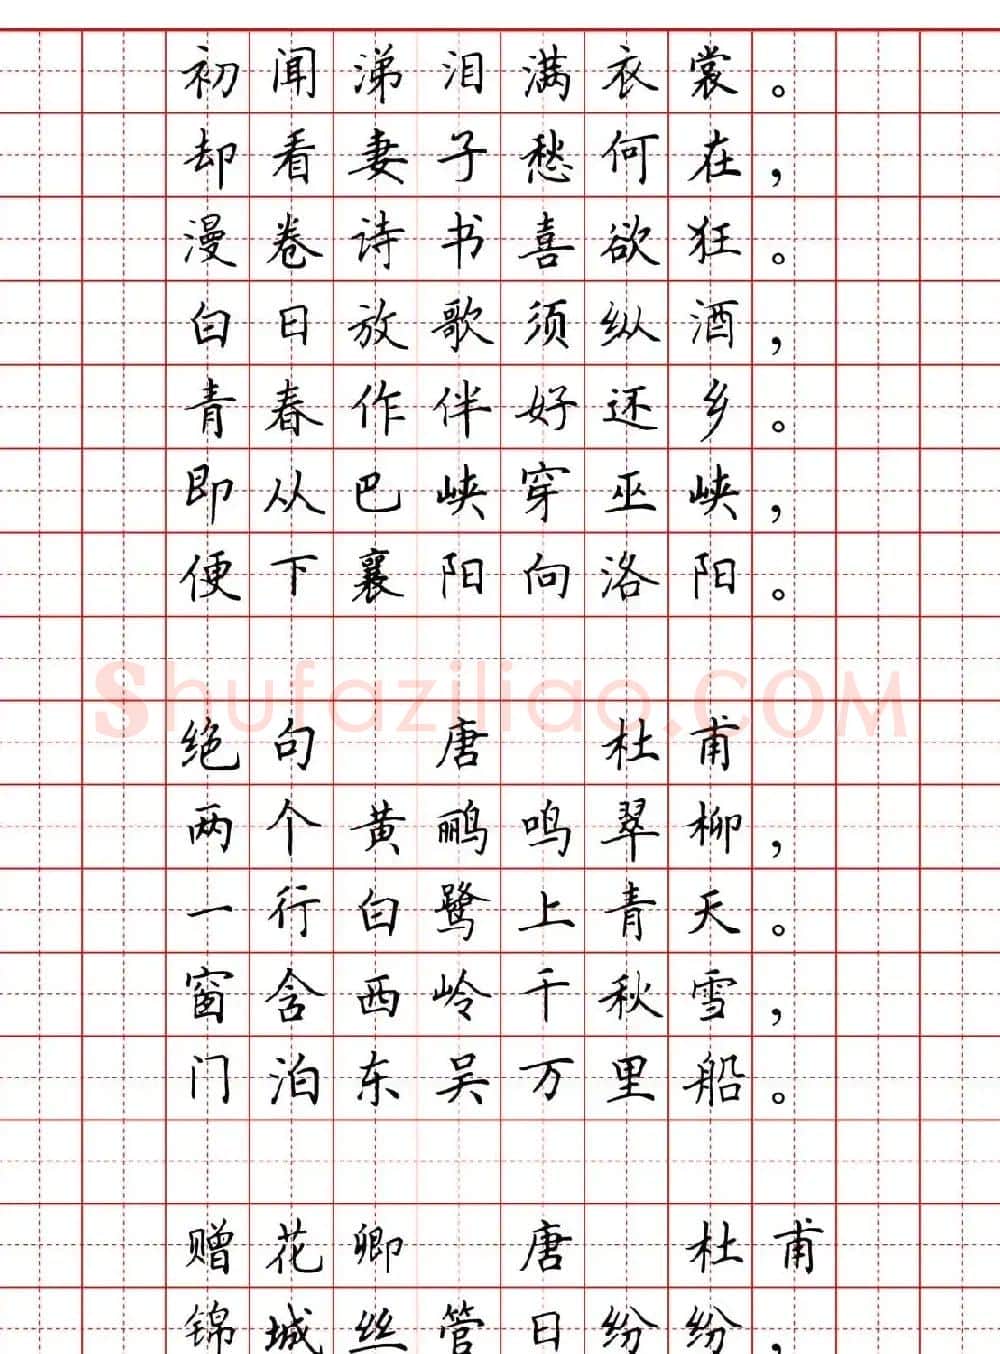 初闻涕泪满衣裳。
却看妻子愁何在，
漫卷诗书喜欲狂。
白日放歌须纵酒，
青春作伴好还乡。
即从巴峡穿巫峡，
便下襄阳向洛阳。
Shufaziliao.COM
绝句 唐 杜甫
两个黄鹂鸣翠柳，
一行白鹭上青天。
窗含西岭千秋雪，
门泊东吴万里船。
赠花卿 唐 杜甫
锦城丝管日纷纷，